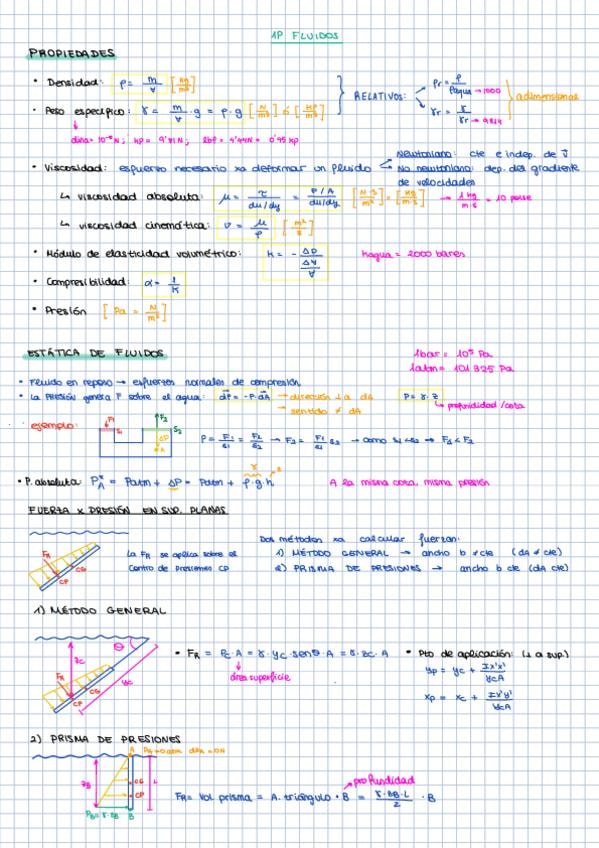 1P FLUIDOS
PROPIEDADES
• Densidad: ρ = m/∀ [kg/m³]
RELATIVOS: ρr = ρ/ρagua → 1000
γr = γ/γr → 9814
adimensional
• Peso específico: γ = m/∀ · g = ρ · g [N/m³] ó [kp/m³]
dina = 10⁻⁵ N; kp = 9'81 N; lbf = 4'44N = 0'45 kp
• Viscosidad: esfuerzo necesario xa deformar un fluido
Newtoniano: cte e indep. de v⃗
No newtoniano: dep. del gradiente
de velocidades
↳ viscosidad absoluta: μ = τ/(du/dy) = (F/A)/(du/dy) [N·s/m²] = [kg/m·s] → 1 kg/m·s = 10 poise
↳ viscosidad cinemática: ν = μ/ρ [m²/s]
• Módulo de elasticidad volumétrico: K = - ΔP/(Δ∀/∀) Kagua = 2000 bares
• Compresibilidad: α = 1/K
• Presión [Pa = N/m²]
ESTÁTICA DE FLUIDOS
1bar = 10⁵ Pa
1atm = 101 325 Pa
• Fluido en reposo → esfuerzos normales de compresión
• La PRESIÓN genera F sobre el agua: dF⃗ = -P·dA⃗ → dirección ⊥ a dA P = γ·z
→ sentido ≠ dA ↳ profundidad/cota
ejemplo: F1 S1 F2 S2 P = F1/S1 = F2/S2 → F2 = F1/S1 · S2 → como S1<S2 → F1<F2
• P. absoluta: P*A = Patm + ΔP = Patm + ρ·g·h A la misma cota, misma presión
FUERZA x PRESIÓN EN SUP. PLANAS
FR CG CP
La FR se aplica sobre el
Centro de Presiones CP
Dos métodos xa calcular fuerzas:
1) MÉTODO GENERAL → ancho b ≠ cte (dA ≠ cte)
2) PRISMA DE PRESIONES → ancho b cte (dA cte)
1) MÉTODO GENERAL
θ zc FR CG CP yc
• FR = Pc · A = γ · yc · senθ · A = γ · zc · A
área superficie
• Pto de aplicación: (⊥ a sup.)
yp = yc + Ix'x'/ycA
xp = xc + Ix'y'/ycA
2) PRISMA DE PRESIONES
A
zB CG CP L
PB = γ·zB B
profundidad
FR = Vol prisma = A. triángulo · B = γ·zB·L/2 · B